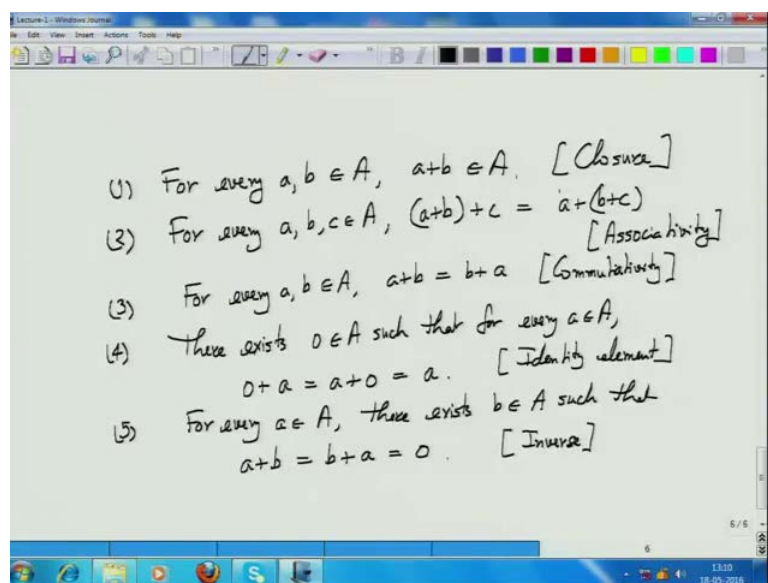 Lecture-1 - Windows Journal
Edit View Insert Actions Tools Help
B I
(1) For every a, b ∈ A, a+b ∈ A. [Closure]
(2) For every a, b, c ∈ A, (a+b)+c = a+(b+c)
[Associativity]
(3) For every a, b ∈ A, a+b = b+a [Commutativity]
(4) There exists 0 ∈ A such that for every a ∈ A,
0+a = a+0 = a. [Identity element]
(5) For every a ∈ A, there exists b ∈ A such that
a+b = b+a = 0. [Inverse]
6/6
6
13:10
18-05-2016